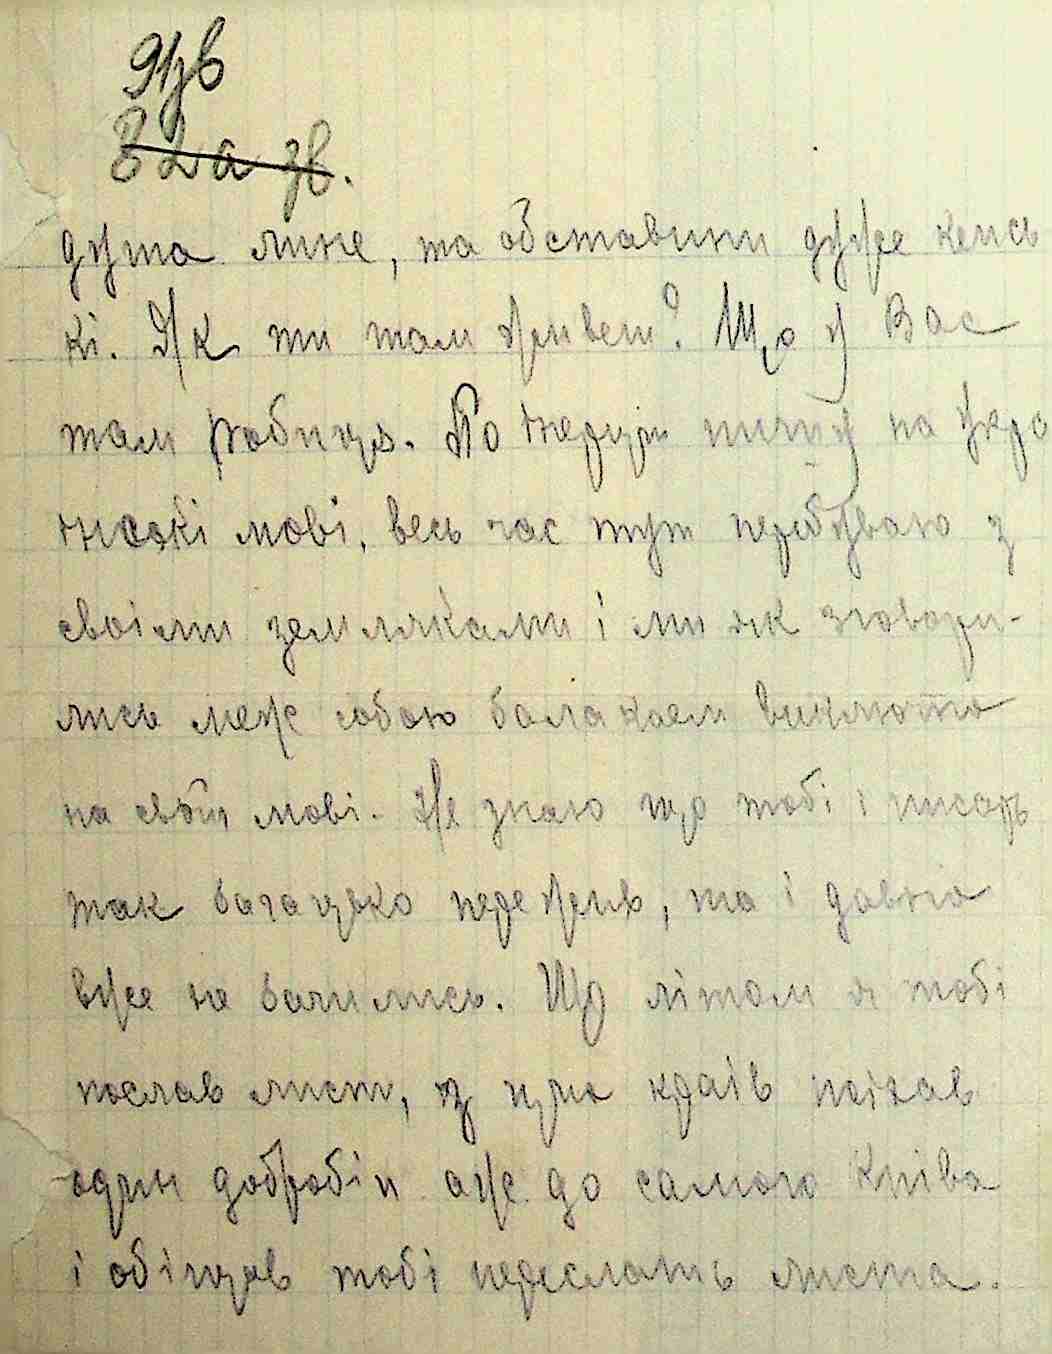 91зв
82а зв.
душа лине, та обставини дуже кепсь
кі. Як ти там живеш? Що у Вас
там робиця. По пишу на Укра
мові, весь час тут перебуваю з
своіми земляками і ми як зговори-
лись меж собою балакаем виключто
на своій мові. Не знаю що тобі і писать
так багацько пережив, та і давно
вже не бачились. Що літом я тобі
послав лист, з цих краів поіхав
один добробіп аж до самого Киіва
і обіщав тобі переслать листа.